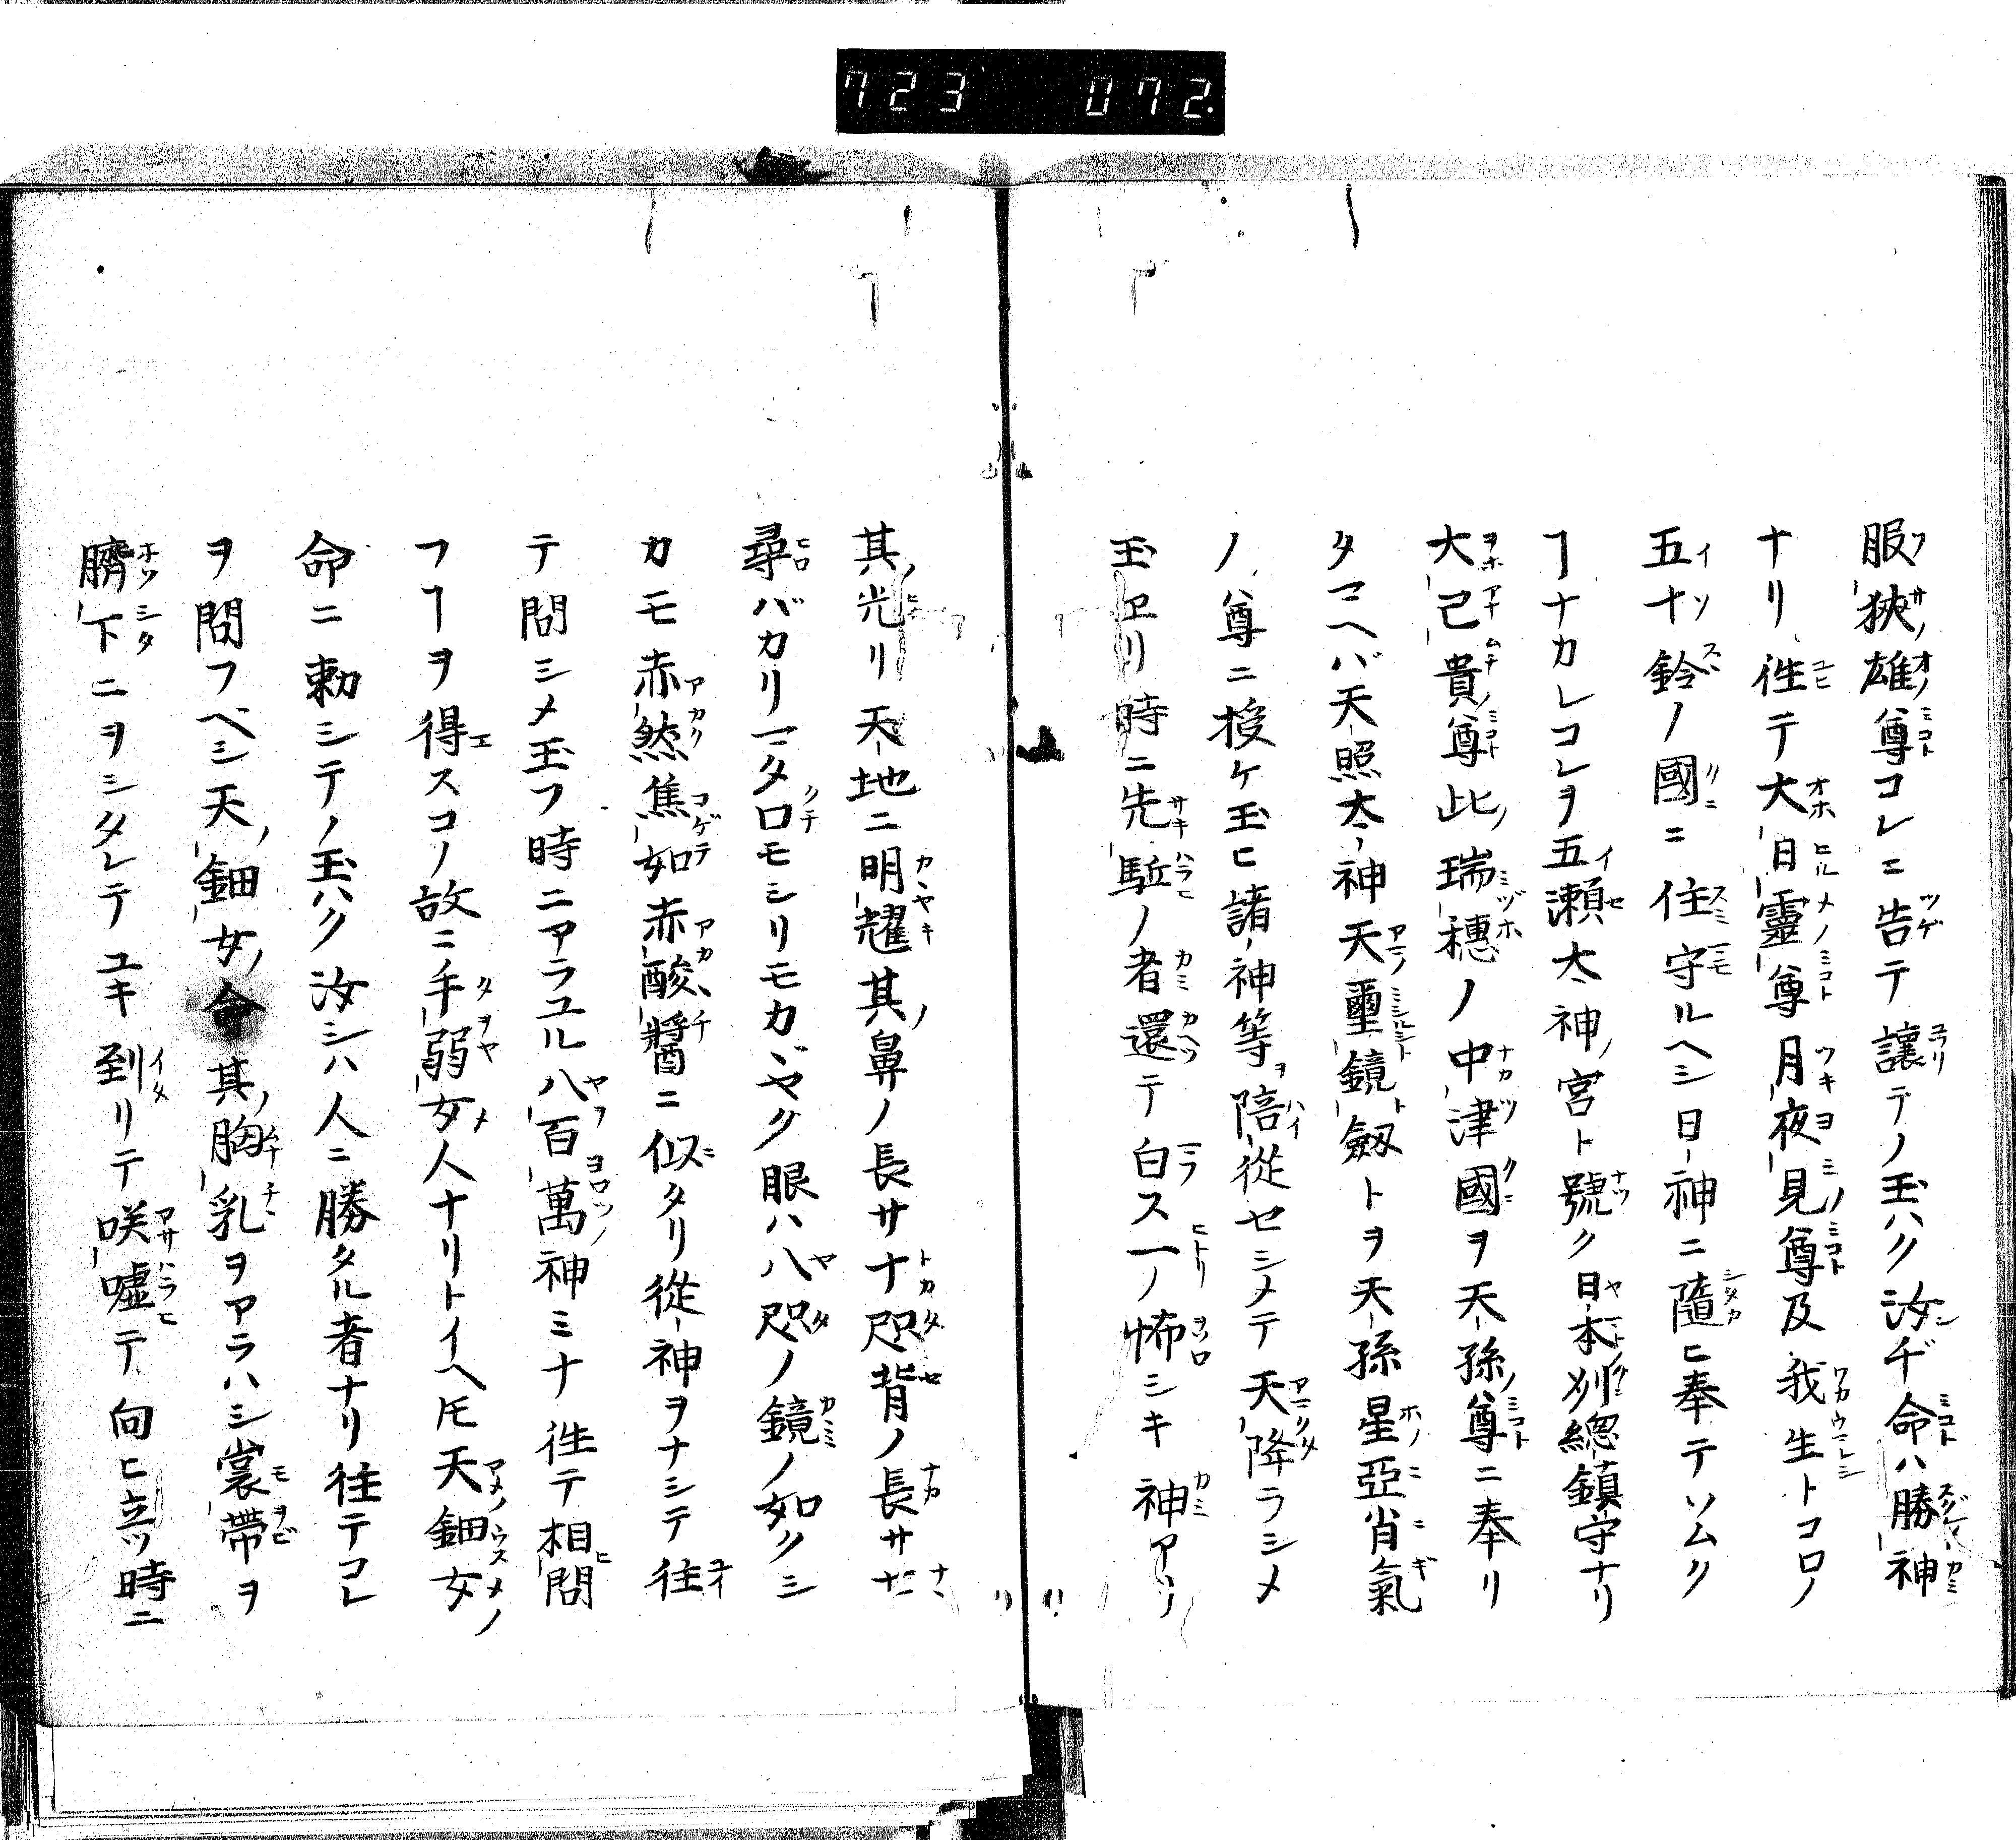 723 072
服狹雄尊コレニ告テ讓テノ玉ハク汝ヂ命ハ勝神
ナリ徃テ大日靈尊月夜見尊及我生トコロノ
五十鈴ノ國ニ住守ルヘシ日神ニ隨ヒ奉テソムク
ヿナカレコレヲ五瀬太神ノ宮ト號ク日本刕總鎮守ナリ
大己貴尊此ノ瑞穗ノ中津國ヲ天孫尊ニ奉リ
タマヘバ天照太神天璽鏡劔トヲ天孫星亞肖氣
ノ尊ニ授ケ玉ヒ諸神等ヲ陪從セシメテ天降ラシメ
玉ヱリ時ニ先駈ノ者還テ白ス一ノ怖シキ神アリ
其ノ光リ天地ニ明耀其ノ鼻ノ長サ十咫背ノ長サ七
尋バカリマタ口モシリモカヾヤク眼ハ八咫ノ鏡ノ如クシ
カモ赤然焦如赤酸醬ニ似タリ從神ヲナシテ往
テ問シメ玉フ時ニアラユル八百萬神ミナ徃テ相問
フヿヲ得スコノ故ニノ手弱女人ナリトイヘ𪜈天鈿女
命ニ勅シテノ玉ハク汝シハ人ニ勝タル者ナリ往テコレ
ヲ問フベシ天ノ鈿女ノ命其ノ胸乳ヲアラハシ裳帶ヲ
臍下ニヲシタレテユキ到リテ咲噓テ向ヒ立ツ時ニ